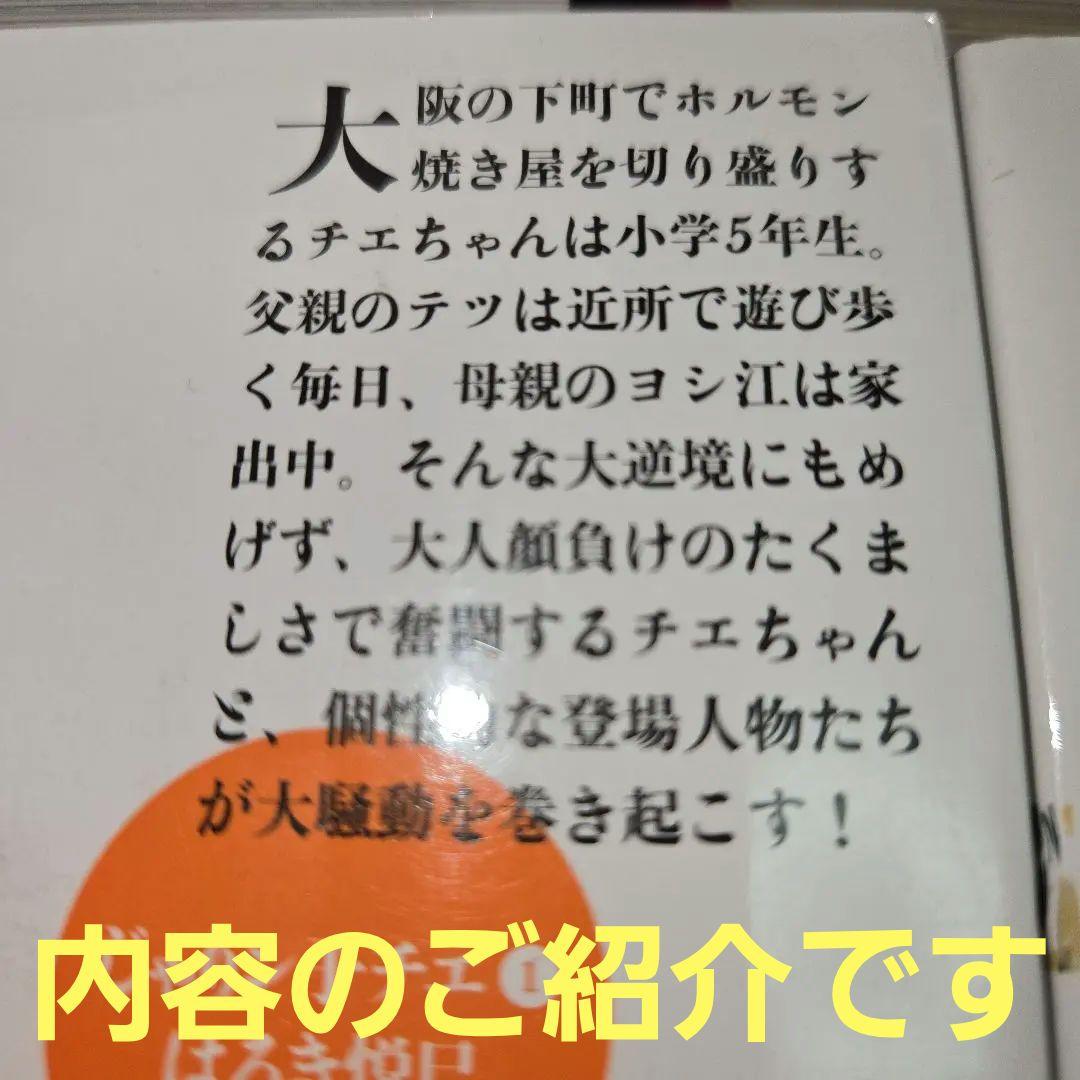 大阪の下町でホルモン
焼き屋を切り盛りす
るチエちゃんは小学5年生。
父親のテツは近所で遊び歩
く毎日、母親のヨシ江は家
出中。そんな大逆境にもめ
げず、大人顔負けのたくま
しさで奮闘するチエちゃん
と、個性的な登場人物たち
が大騒動を巻き起こす!
じゃりン子チエ 1
はるき悦巳
内容のご紹介です